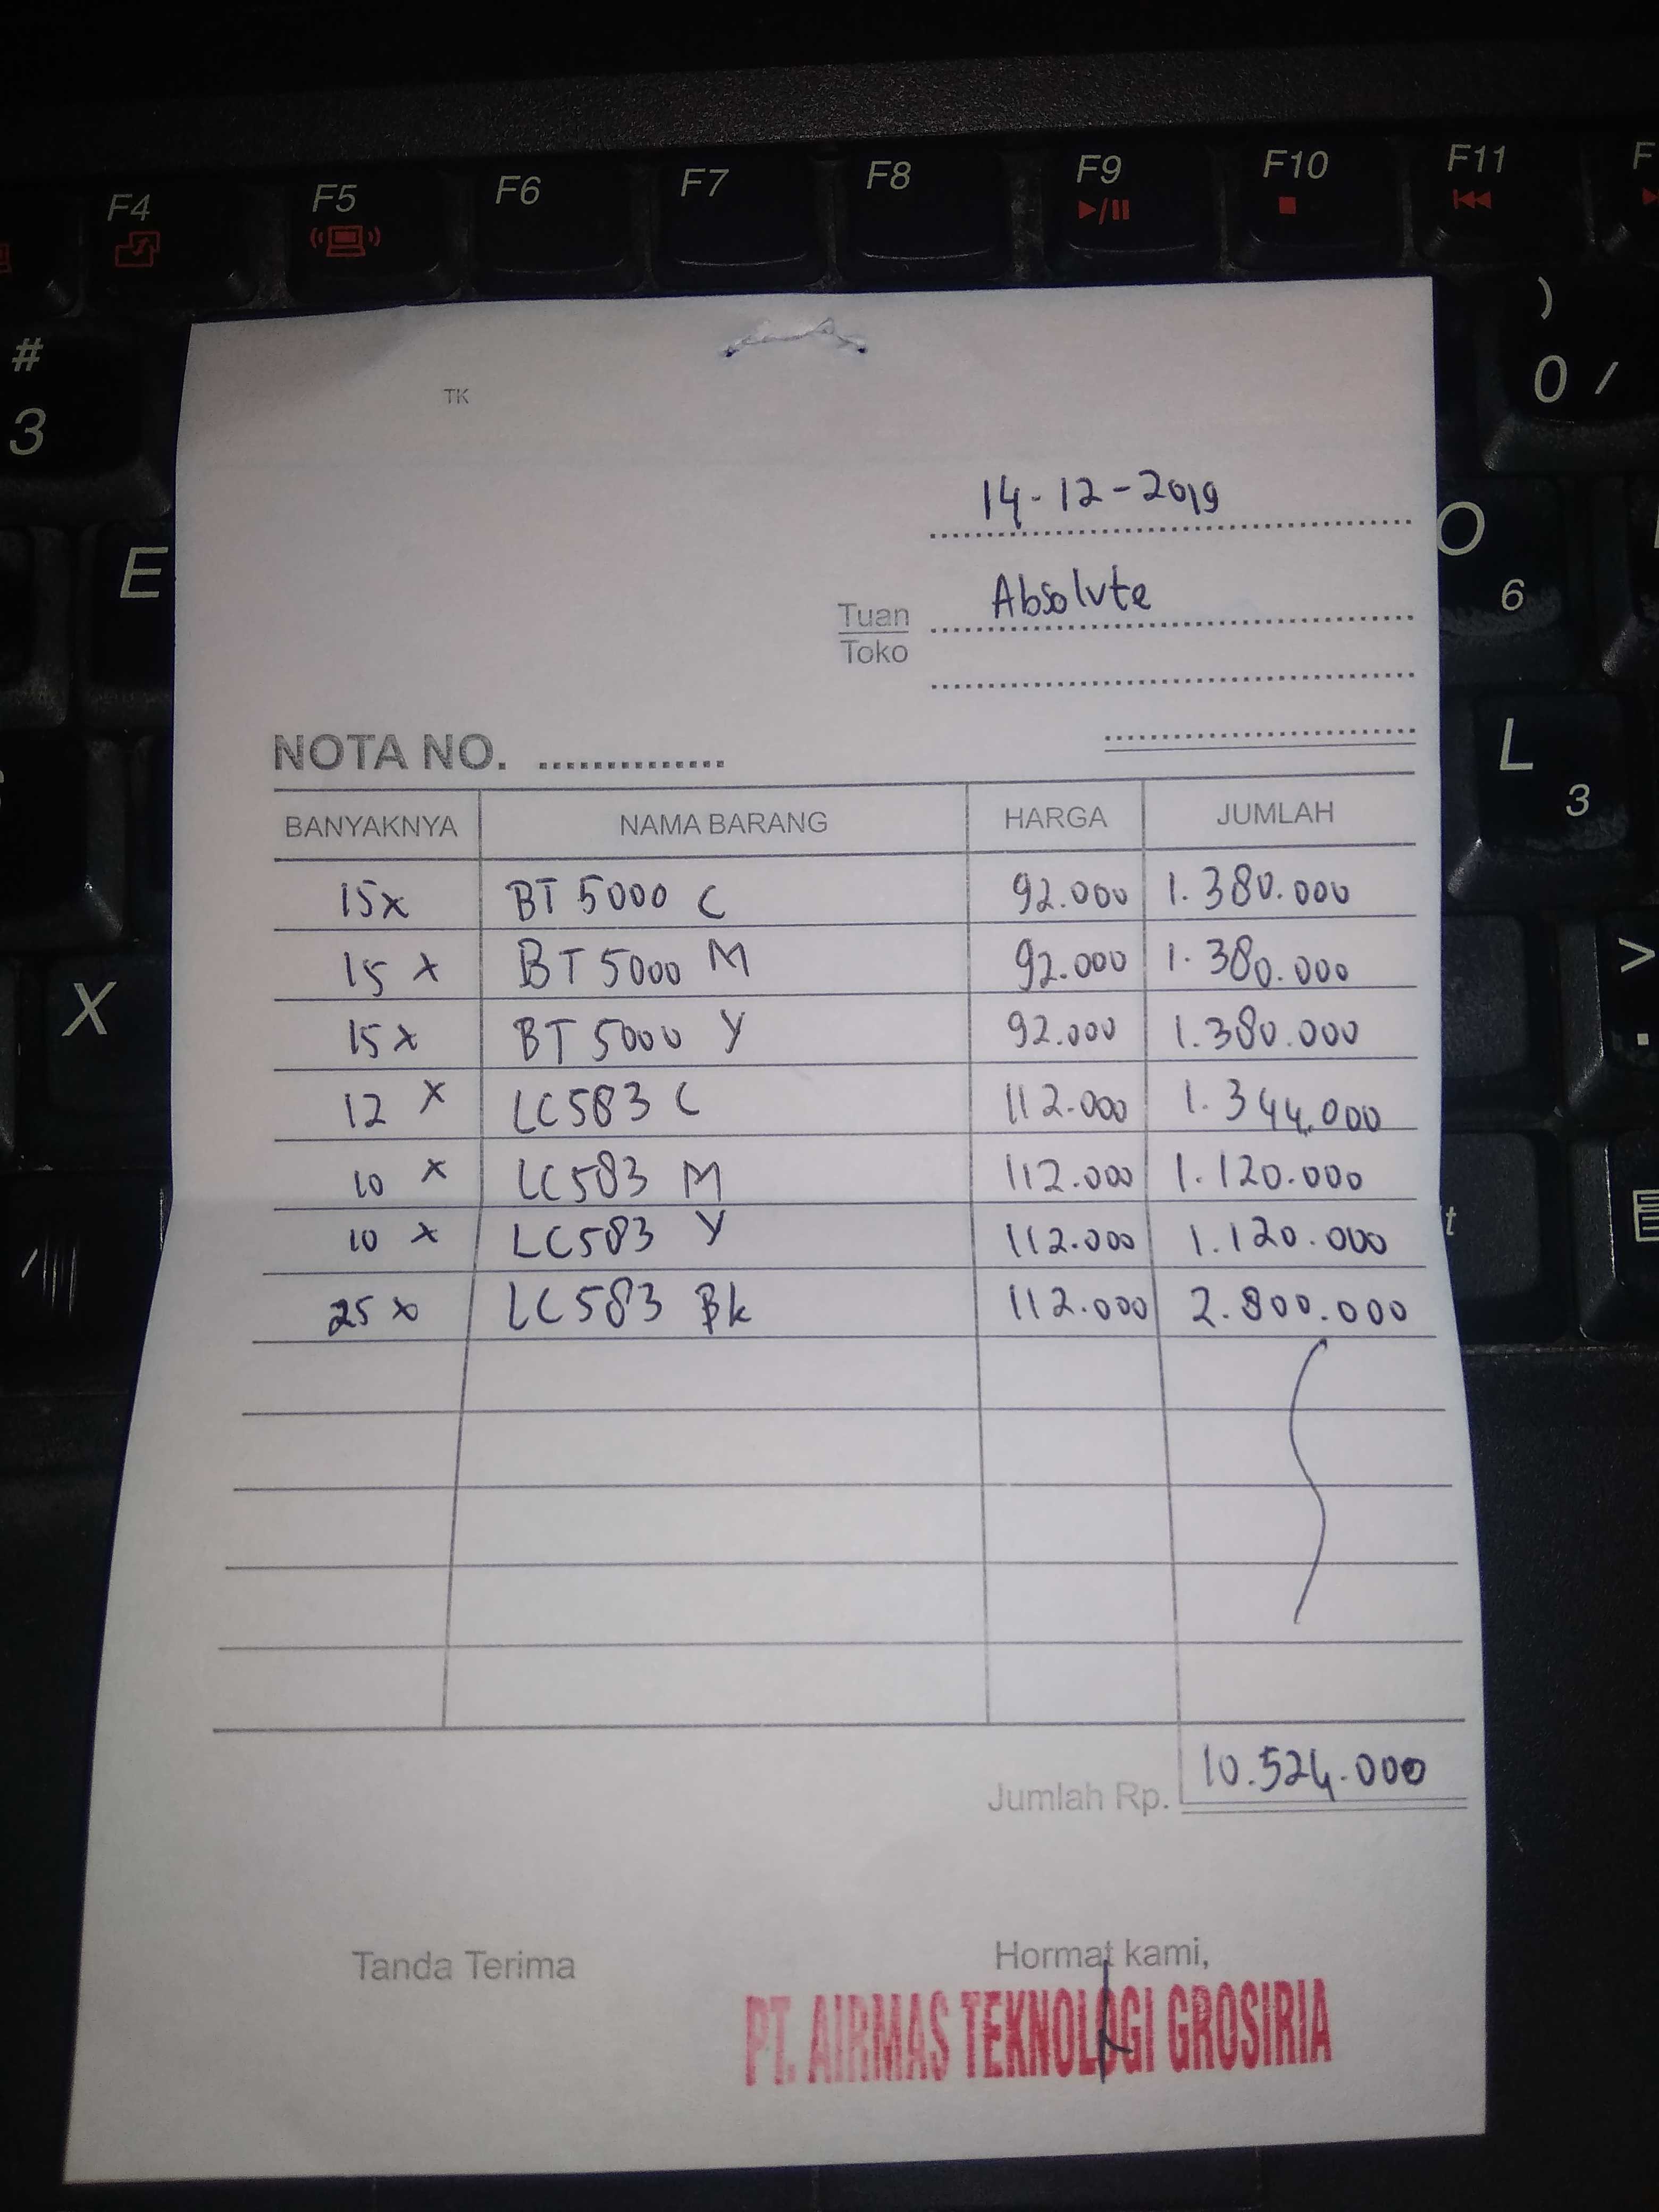 F4 F5 F6 F7 F8 F9 F10 F11 F
# 3
) 0 /
TK
14-12-2019
E
O 6
Tuan Absolute
Toko
L 3
NOTA NO. ..............
BANYAKNYA NAMA BARANG HARGA JUMLAH
15x BT 5000 C 92.000 1.380.000
15 x BT 5000 M 92.000 1.380.000
15x BT 5000 Y 92.000 1.380.000
12 x LC583 C 112.000 1.344.000
10 x LC583 M 112.000 1.120.000
10 x LC583 Y 112.000 1.120.000
25 x LC583 Bk 112.000 2.800.000
X
> .
t
Jumlah Rp. 10.524.000
Tanda Terima Hormat kami,
PT. AIRMAS TEKNOLOGI GROSIRIA